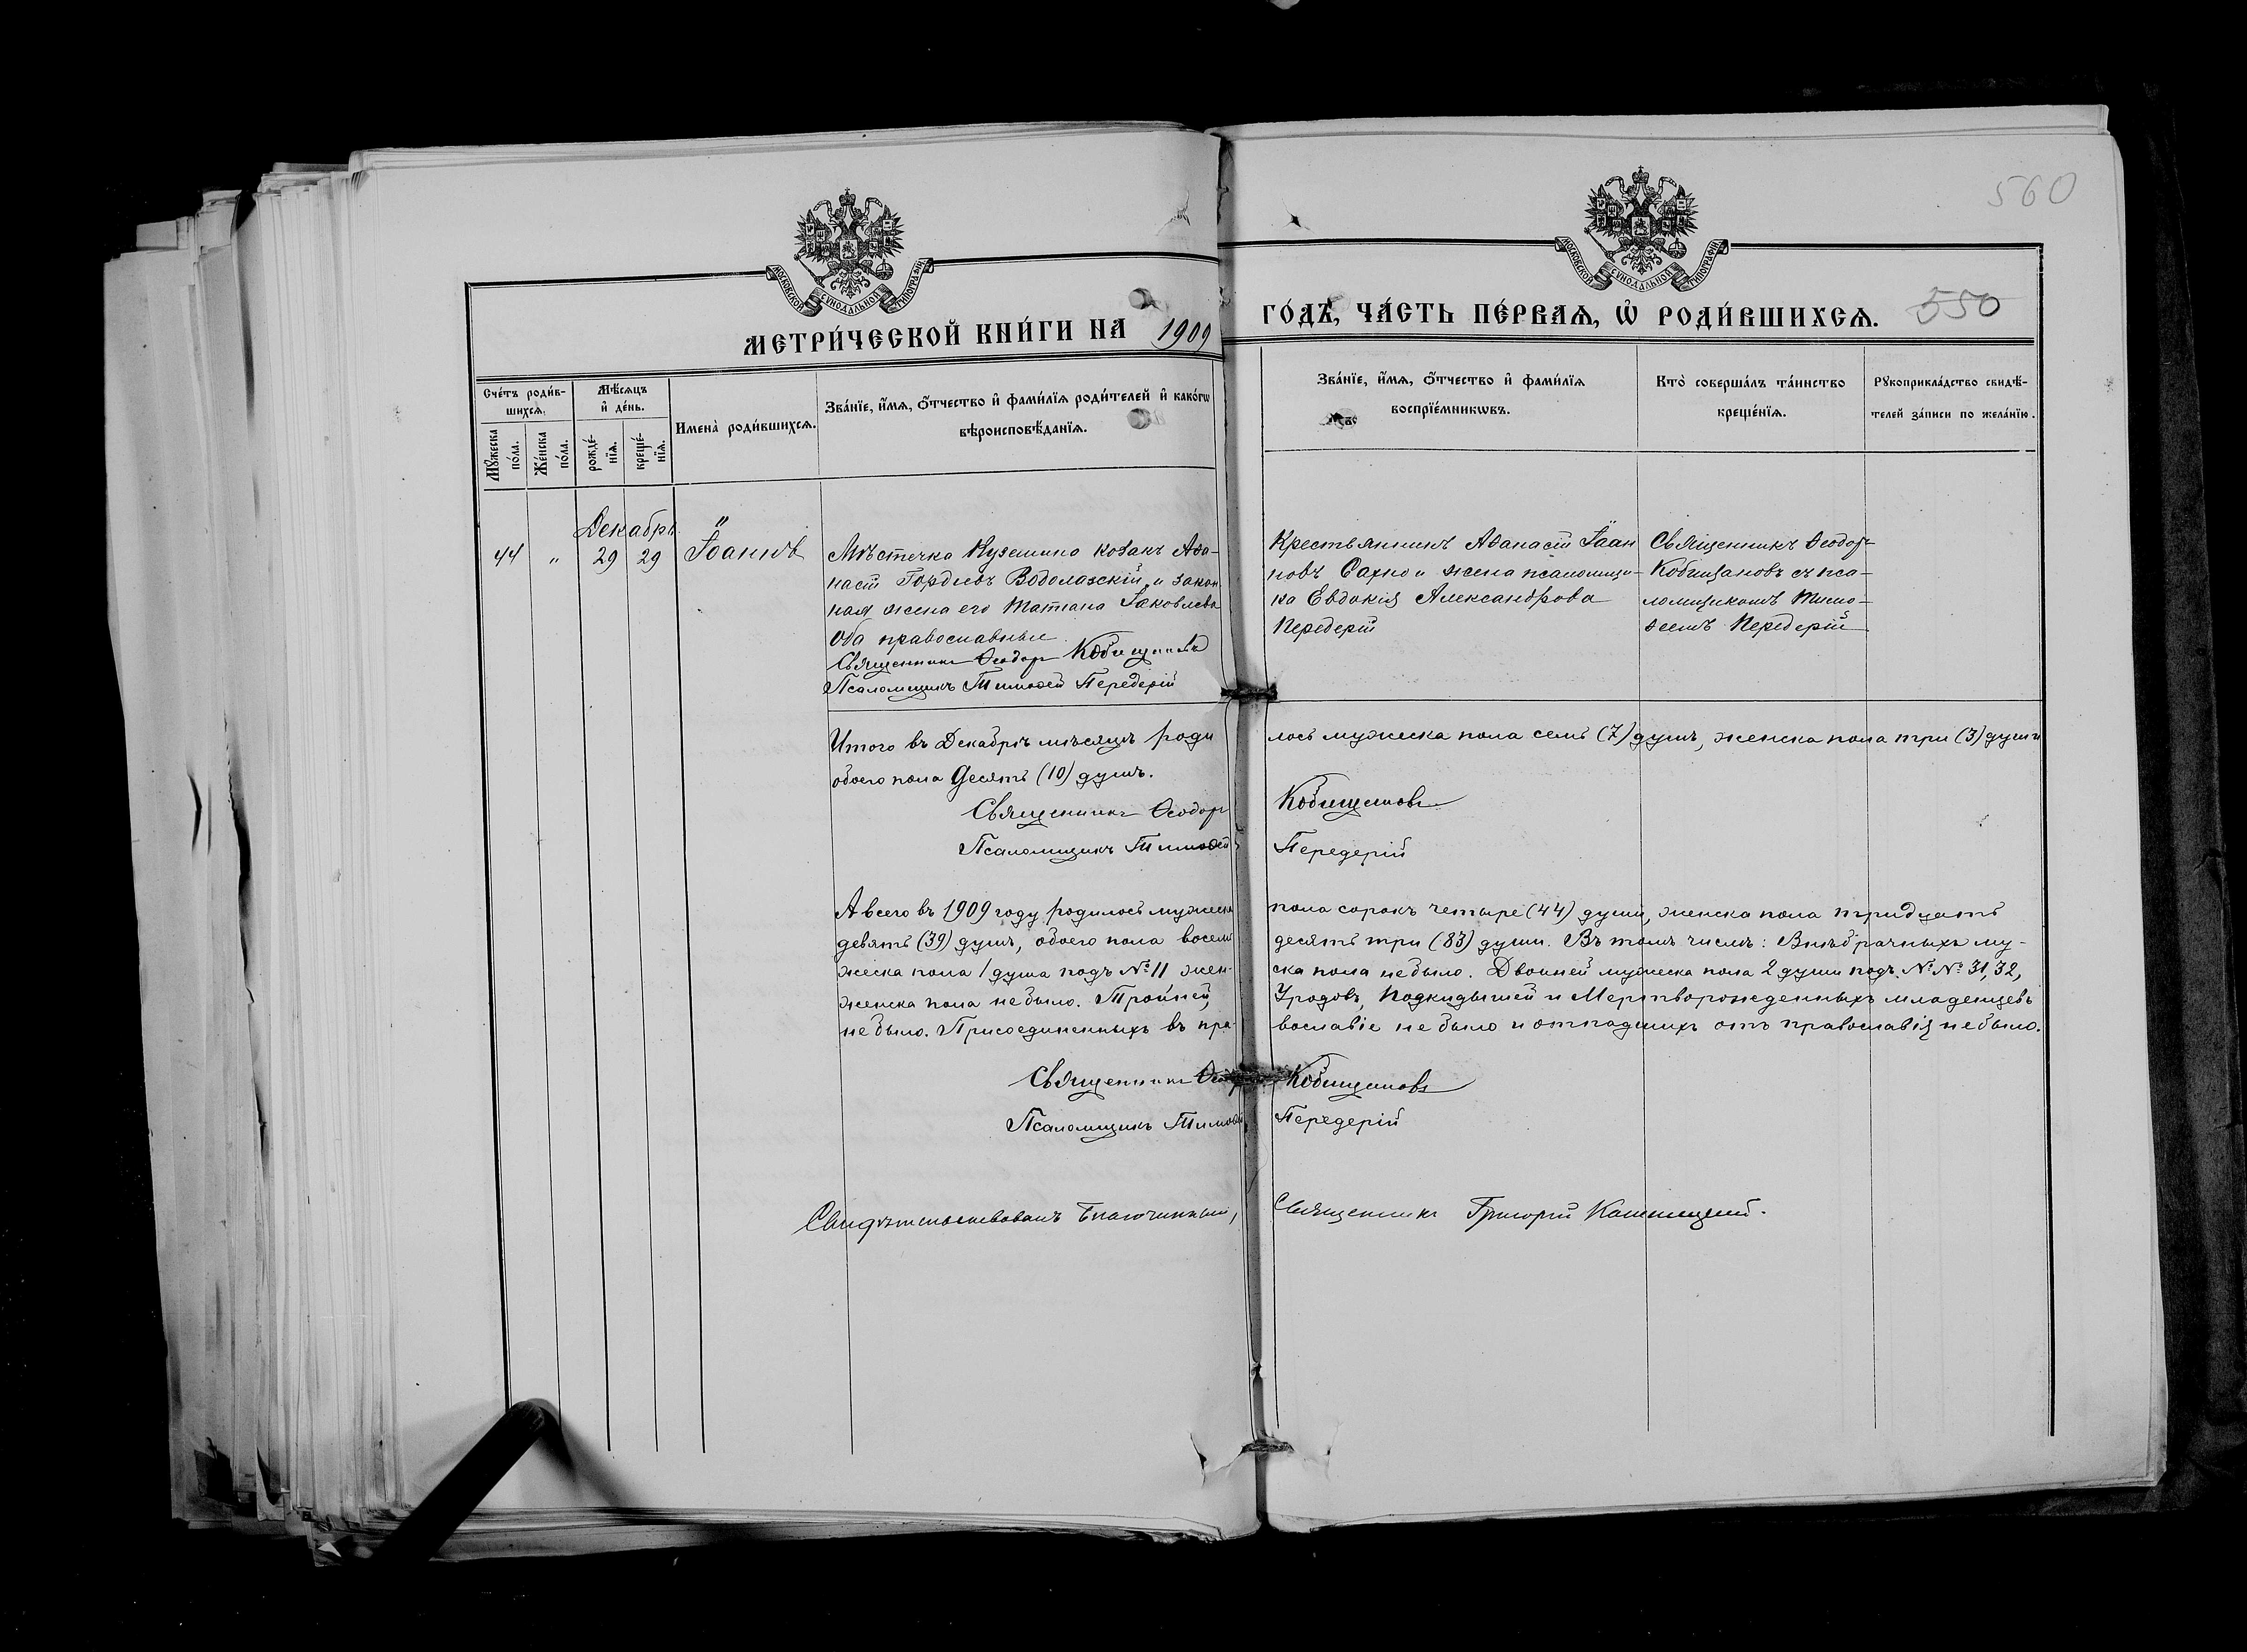 560
МОСКОВСКОЙ СѴНОДАЛЬНОЙ ТИПОГРАФІИ
МОСКОВСКОЙ СѴНОДАЛЬНОЙ ТИПОГРАФІИ
МЕТРИ́ЧЕСКОЙ КНИ́ГИ НА 1909 ГО́ДЪ, ЧА́СТЬ ПЕ́РВАѦ, Ѡ҆ РОДИ́ВШИХСѦ. 550
Сче́тъ роди́в-
шихсѧ.
Мѣ́сѧцъ
и҆ де́нь.
Мꙋ́жеска
по́ла.
Же́нска
по́ла.
рожде́-
нїѧ.
креще́-
нїѧ.
Имена̀ роди́вшихсѧ.
Зва́нїе, и҆́мѧ, ѻ҆́тчество и҆ фами́лїѧ роди́телей и҆ како́гѡ
вѣроисповѣ́данїѧ.
Зва́нїе, и҆́мѧ, ѻ҆́тчество и҆ фами́лїѧ
воспрїе́мникѡвъ.
Кто̀ соверша́лъ та́инство
креще́нїѧ.
Рꙋкоприкла́дство свидѣ́-
телей за́писи по жела́нїю.
Декабрь
44 " 29 29 Іоаннъ
Мѣстечка Куземина козакъ Аѳа-
насій Гордіевъ Водолазскій и закон
ная жена его Татіана Іаковлева
Оба православные.
Священникъ Ѳеодоръ Кобищановъ
Псаломщикъ Тимоѳей Передерій
Крестьянинъ Аѳанасій Іоан
новъ Сахно и жена псаломщи-
ка Евдокія Александрова
Передерій
Священникъ Ѳеодоръ
Кобищановъ съ пса-
ломщикомъ Тимо-
ѳеемъ Передерій
Итого въ Декабрѣ мѣсяцѣ роди лось мужеска пола семь (7) душъ, женска пола три (3) души
обоего пола Десять (10) душъ.
Священникъ Ѳеодоръ Кобищановъ
Псаломщикъ Тимоѳей Передерій
А всего въ 1909 году родилось мужеска пола сорокъ четыре (44) души, женска пола тридцать
девять (39) душъ, обоего пола восемь десять три (83) души. Въ томъ числѣ: Внѣбрачныхъ му-
жеска пола 1 душа подъ № 11 жен- ска пола не было. Двойней мужеска пола 2 души подъ №№ 31, 32,
женска пола не было. Тройней, Уродовъ, Подкидышей и Мертворожденныхъ младенцевъ
не было. Присоединенныхъ въ пра- вославіе не было и отпадшихъ отъ православія не было.
Священникъ Кобищановъ
Псаломщикъ Тимоѳей Передерій
Свидѣтельствовалъ Благочинный, Священникъ Григорій